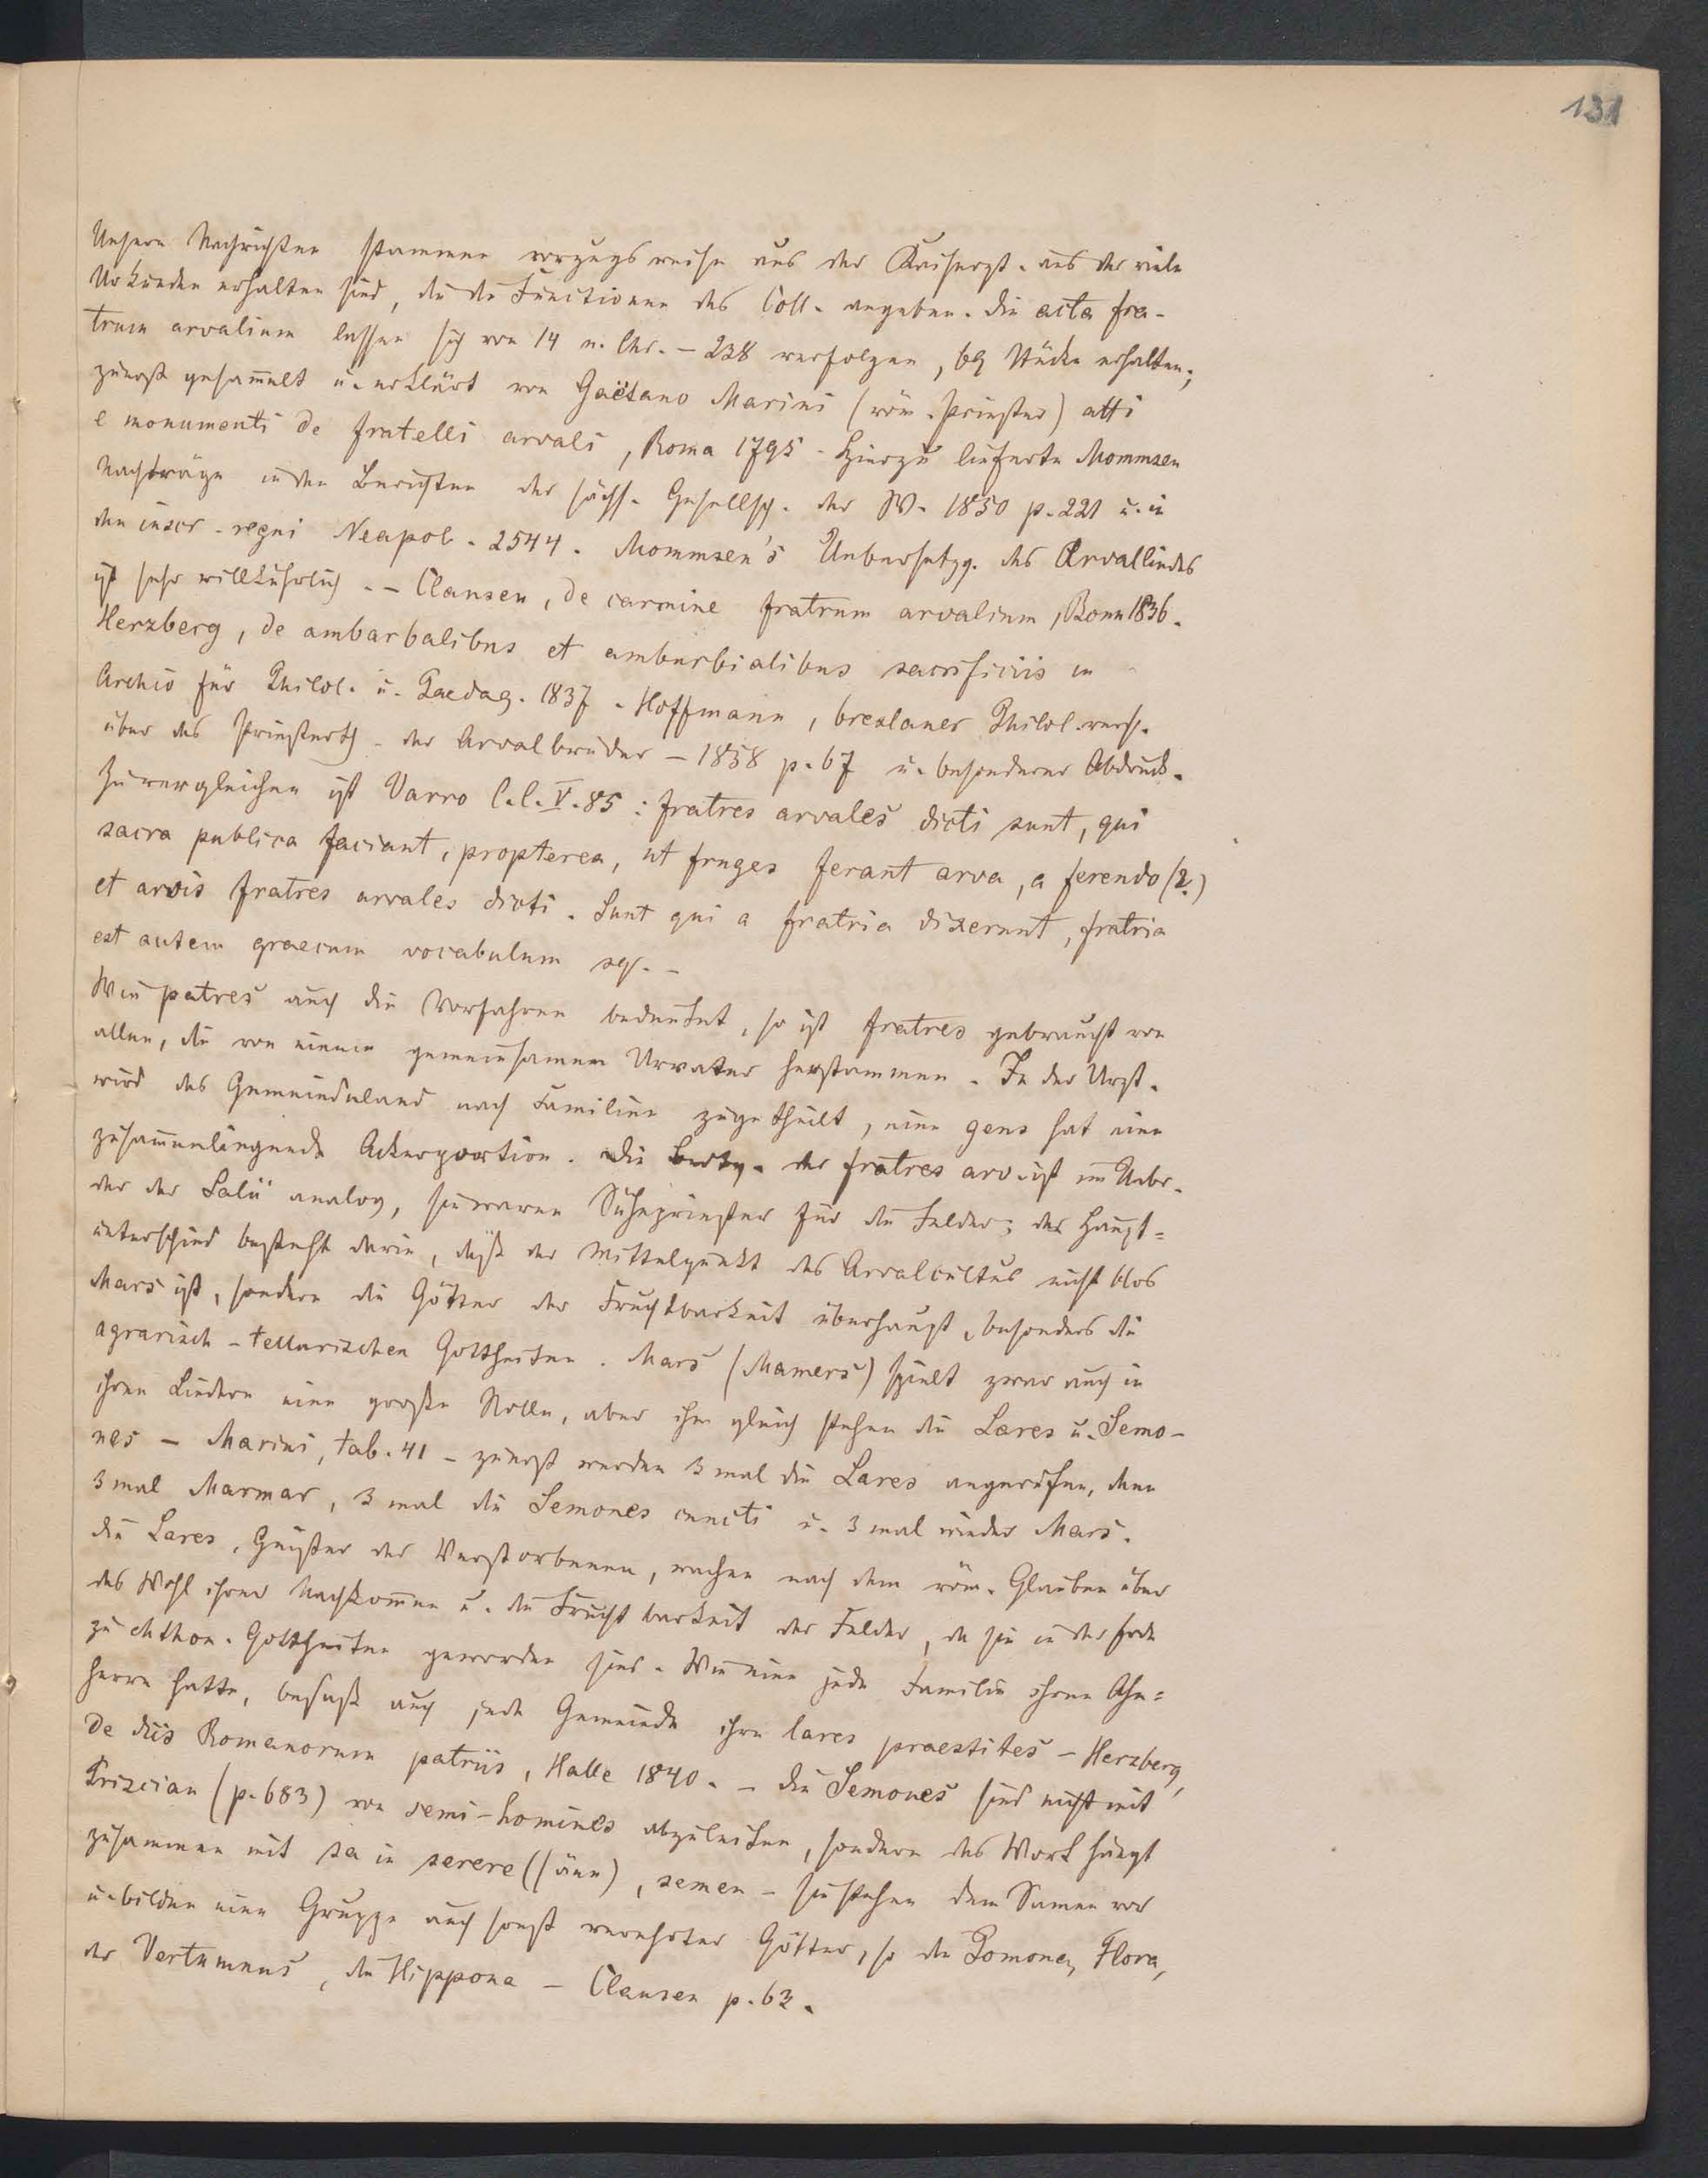 131
Unsere Nachrichten stammen vorzugsweise aus der Kaiserzt. aus der viele
Urkunden erhalten sind, die die Functionen des Coll. angeben. Die acta fra-
trum arvalium lassen sich von 14 n. Chr. – 238 verfolgen, 69 Stücke erhalten;
zuerst gesam̄elt u. erklärt von Gaëtano Marini (röm. Priester) atti
e monumenti de fratelli arvali, Roma 1795. Hierzu lieferte Mommsen
Nachträge in den Berichten der sächs. Gesellsch. der W. 1850 p. 221 u. in
den inscr. regni Neapol. 2544. Mommsen's Uebersetzg. des Arvalliedes
ist sehr willkührlich. – Clausen, de carmine fratrum arvalium, Bonn 1836.
Herzberg, de ambarbalibus et amburbialibus sacrificiis in
Archiv für Philol. u. Paedag. 1837. Hoffmann, breslauer Philol. vers.
über das Priesterth. der Arvalbrüder – 1858 p. 67 u. besonderer Abdruck.
Zu vergleichen ist Varro l. l. V. 85: fratres arvales dicti sunt, qui
sacra publica faciant, propterea, ut fruges ferant arva, a ferendo (?)
et arvis fratres arvales dicti. Sunt qui a fratria dixerunt, fratria
est autem graecum vocabulum sq. –
Wie patres auch die Vorfahren bedeutet, so ist fratres gebraucht von
allen, die von einem gemeinsamen Urvater herstammen. In der Urzt.
wird das Gemeindeland nach Familien zugetheilt, eine gens hat eine
zusam̄enliegende Ackerportion. Die Bedtg. der fratres arv. ist im Uebr.
der der Salii analog, sie waren Sühepriester für die Felder; der Haupt=
unterschied besteht darin, daß der Mittelpunkt des Arvalcultus nicht blos
Mars ist, sondern die Götter der Fruchtbarkeit überhaupt, besonders die
agrarisch-tellurischen Gottheiten. Mars (Mamers) spielt zwar auch in
ihren Liedern eine große Rolle, aber ihm gleich stehen die Lares u. Semo-
nes – Marini, tab. 41 – zuerst werden 3 mal die Lares angerufen, dann
3 mal Marmar, 3 mal die Semones cuncti u. 3 mal wieder Mars.
Die Lares, Geister der Verstorbenen, wachen nach dem röm. Glauben über
das Wohl ihrer Nachkom̄en u. die Fruchtbarkeit der Felder, da sie in der Erde
zu chthon. Gottheiten geworden sind. Wie eine jede Familie ihren Ahn=
herrn hatte, besaß auch jede Gemeinde ihre lares praestites – Herzberg,
de diis Romanorum patriis, Halle 1840. – Die Semones sind nicht mit
Priscian (p. 683) von semi-homines abzuleiten, sondern das Wort hängt
zusammen mit sa in serere (säen), semen – sie stehen dem Samen vor
u. bilden eine Gruppe auch sonst verehrter Götter, so die Pomona, Flora,
der Vertumnus, die Hippona – Clausen p. 63.